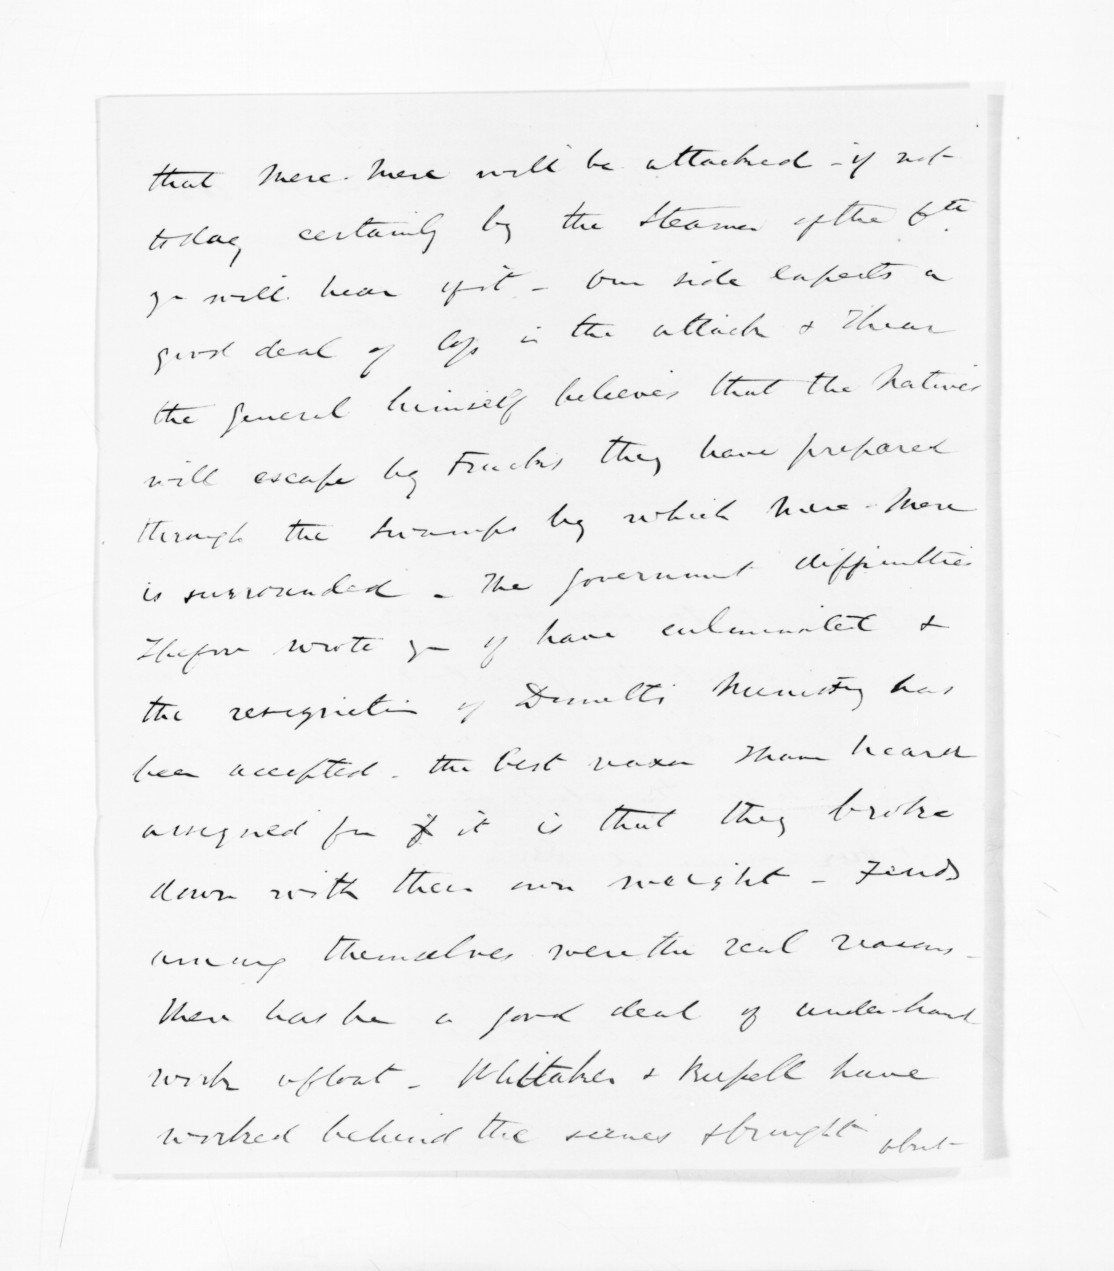 that Mere-Mere will be attacked - if not
today certainly by the Steamer of the 6th.
yr will hear of it - Our side expects a
good deal of loss in the attack & I hear
the General himself believes that the Natives
will escape by tracks they have prepared
through the swamps by which Mere-Mere
is surrounded - The Government difficulties
I before wrote yu of have culminated &
the resignation of Domett's Ministry has
been accepted - the best reason I have heard
assigned for it is that they broke
down with their own weight - Feuds
among themselves were the real reasons -
There has be a good deal of underhand
work afloat - Whitaker & Russell have
worked behind the scenes & brought about